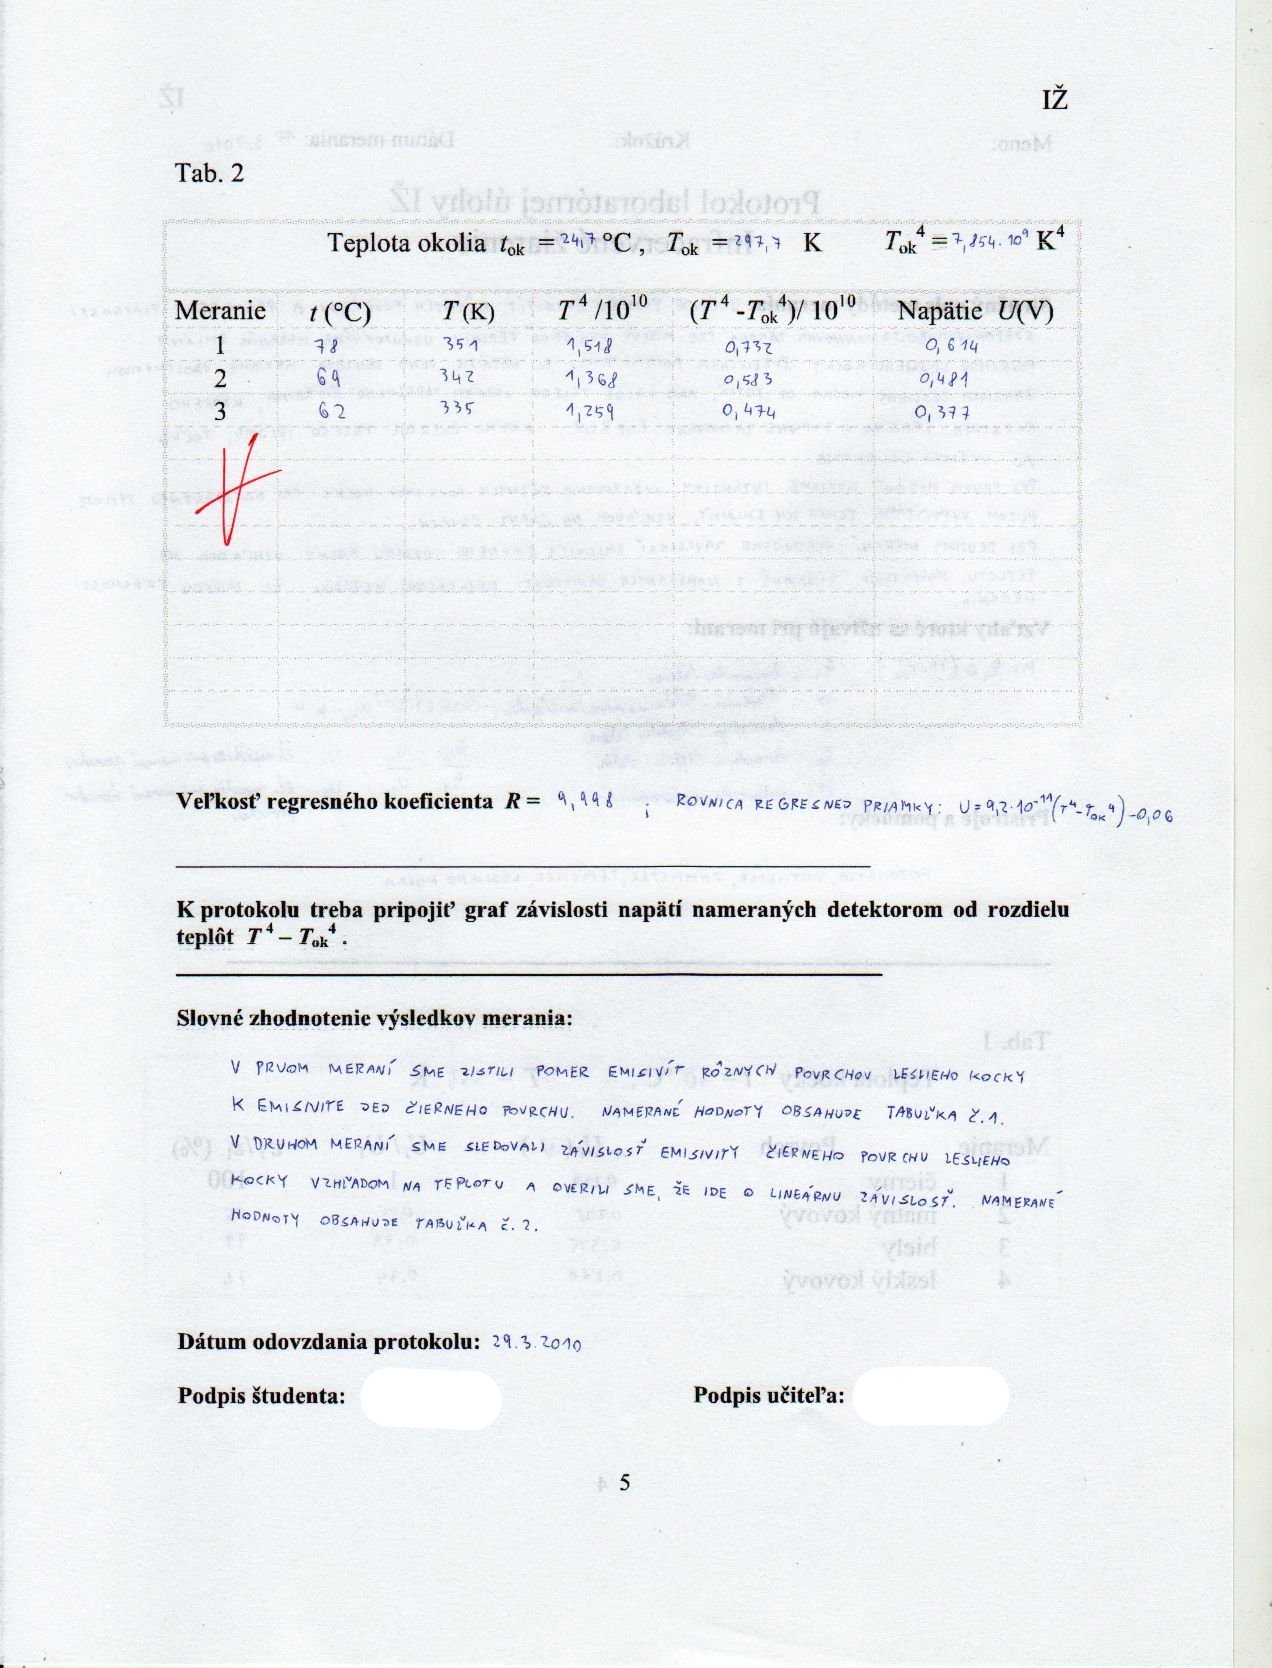 IŽ
Tab. 2
Teplota okolia t ok = 24,7 °C , T ok = 297,7 K T ok 4 = 7,854. 10⁹ K⁴
Meranie t (°C) T (K) T ⁴ /10¹⁰ (T ⁴ -T ok 4)/ 10¹⁰ Napätie U(V)
1 78 351 1,518 0,732 0,614
2 69 342 1,368 0,583 0,481
3 62 335 1,259 0,474 0,377
Veľkosť regresného koeficienta R = 9,998 ; ROVNICA REGRESNEJ PRIAMKY: U = 9,2·10⁻¹¹(T⁴-TOK⁴)-0,06
K protokolu treba pripojiť graf závislosti napätí nameraných detektorom od rozdielu
teplôt T ⁴ – Tok⁴ .
Slovné zhodnotenie výsledkov merania:
V PRVOM MERANÍ SME ZISTILI POMER EMISIVÍT RÔZNYCH POVRCHOV LESLIEHO KOCKY
K EMISIVITE JEJ ČIERNEHO POVRCHU. NAMERANÉ HODNOTY OBSAHUJE TABUĽKA Č.1.
V DRUHOM MERANÍ SME SLEDOVALI ZÁVISLOSŤ EMISIVITY ČIERNEHO POVRCHU LESLIEHO
KOCKY VZHĽADOM NA TEPLOTU A OVERILI SME, ŽE IDE O LINEÁRNU ZÁVISLOSŤ. NAMERANÉ
HODNOTY OBSAHUJE TABUĽKA Č. 2.
Dátum odovzdania protokolu: 29.3.2010
Podpis študenta: Podpis učiteľa:
5